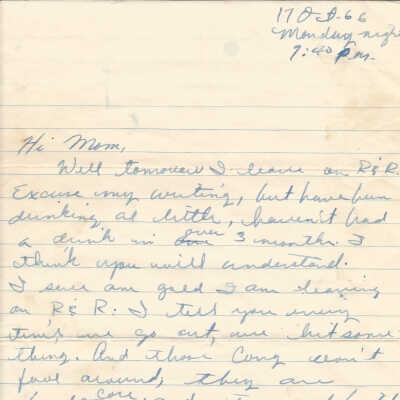 17 Oct. 66
Monday night
9:40 pm.
Hi Mom,
Well tomorrow I leave on R&R.
Excuse my writing, but have been
drinking al little, haven't had
a drink in over 3 months. I
think you will understand.
I sure am gald I am leaving
on R & R. I tell you every
time we go out, we hit some
thing. And those Cong don't
fool around, they are